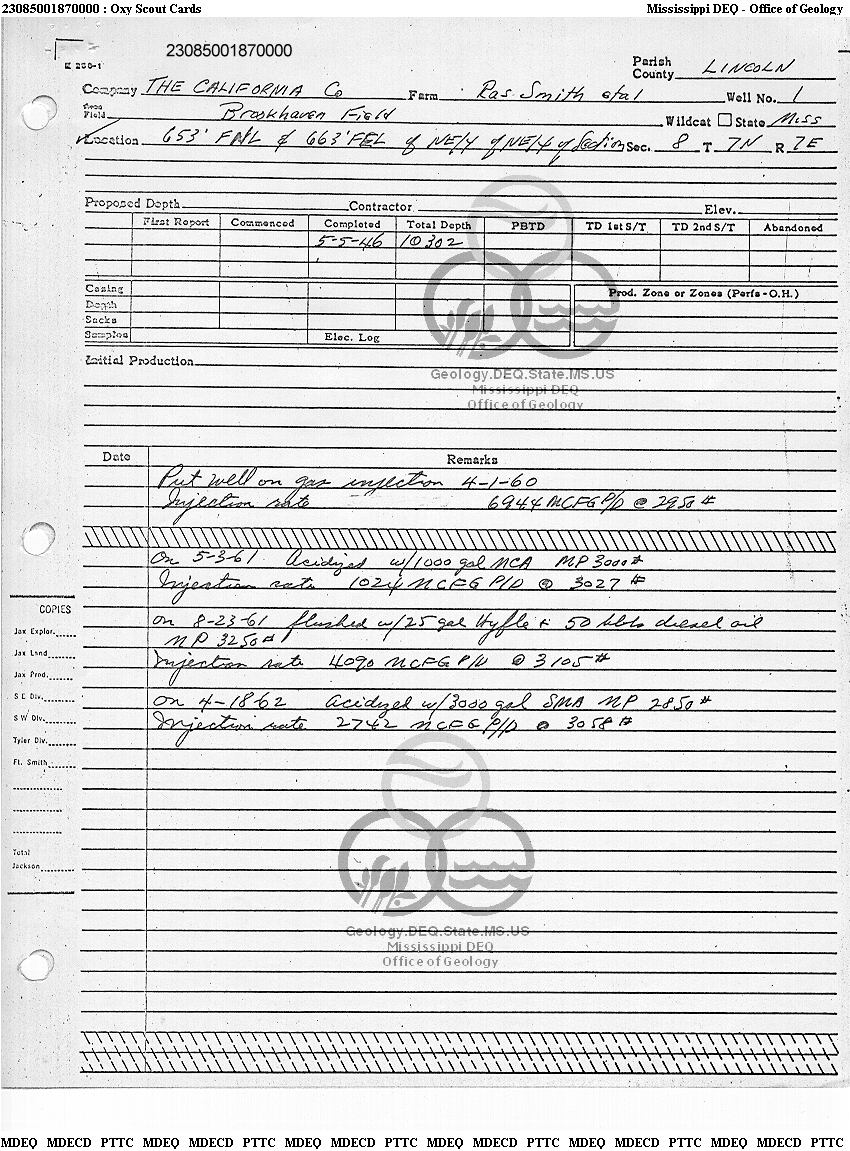 23085001870000 : Oxy Scout Cards Mississippi DEQ - Office of Geology
23085001870000
Parish
County LINCOLN
Company THE CALIFORNIA Co Farm Ras Smith etal Well No. 1
Field Brookhaven Field Wildcat State Miss
Location 653' FNL & 663' FEL of NE/4 of NE/4 of Section Sec. 8 T 7N R 7E
Proposed Depth Contractor Elev.
First Report Commenced Completed Total Depth PBTD TD 1st S/T TD 2nd S/T Abandoned
5-5-46 10302
Casing Prod. Zone or Zones (Perfs - O.H.)
Depth
Sacks
Samples Elec. Log
Geology.DEQ.State.MS.US
Initial Production
Mississippi DEQ
Office of Geology
Date Remarks
Put well on gas injection 4-1-60
Injection rate 6944 MCFG P/D @ 2950#
On 5-3-61 Acidized w/1000 gal MCA MP 3000#
Injection rate 1024 MCFG P/D @ 3027#
On 8-23-61 flushed w/25 gal Hyflo & 50 bbls diesel oil
MP 3250#
Injection rate 4090 MCFG P/D @ 3105#
On 4-18-62 Acidized w/3000 gal SMA MP 2850#
Injection rate 2742 MCFG P/D @ 3058#
COPIES
Jax Explor.
Jax Land
Jax Prod.
S E Div.
S W Div.
Tyler Div.
Ft. Smith
Total
Jackson
Geology.DEQ.State.MS.US
Mississippi DEQ
Office of Geology
MDEQ MDECD PTTC MDEQ MDECD PTTC MDEQ MDECD PTTC MDEQ MDECD PTTC MDEQ MDECD PTTC MDEQ MDECD PTTC